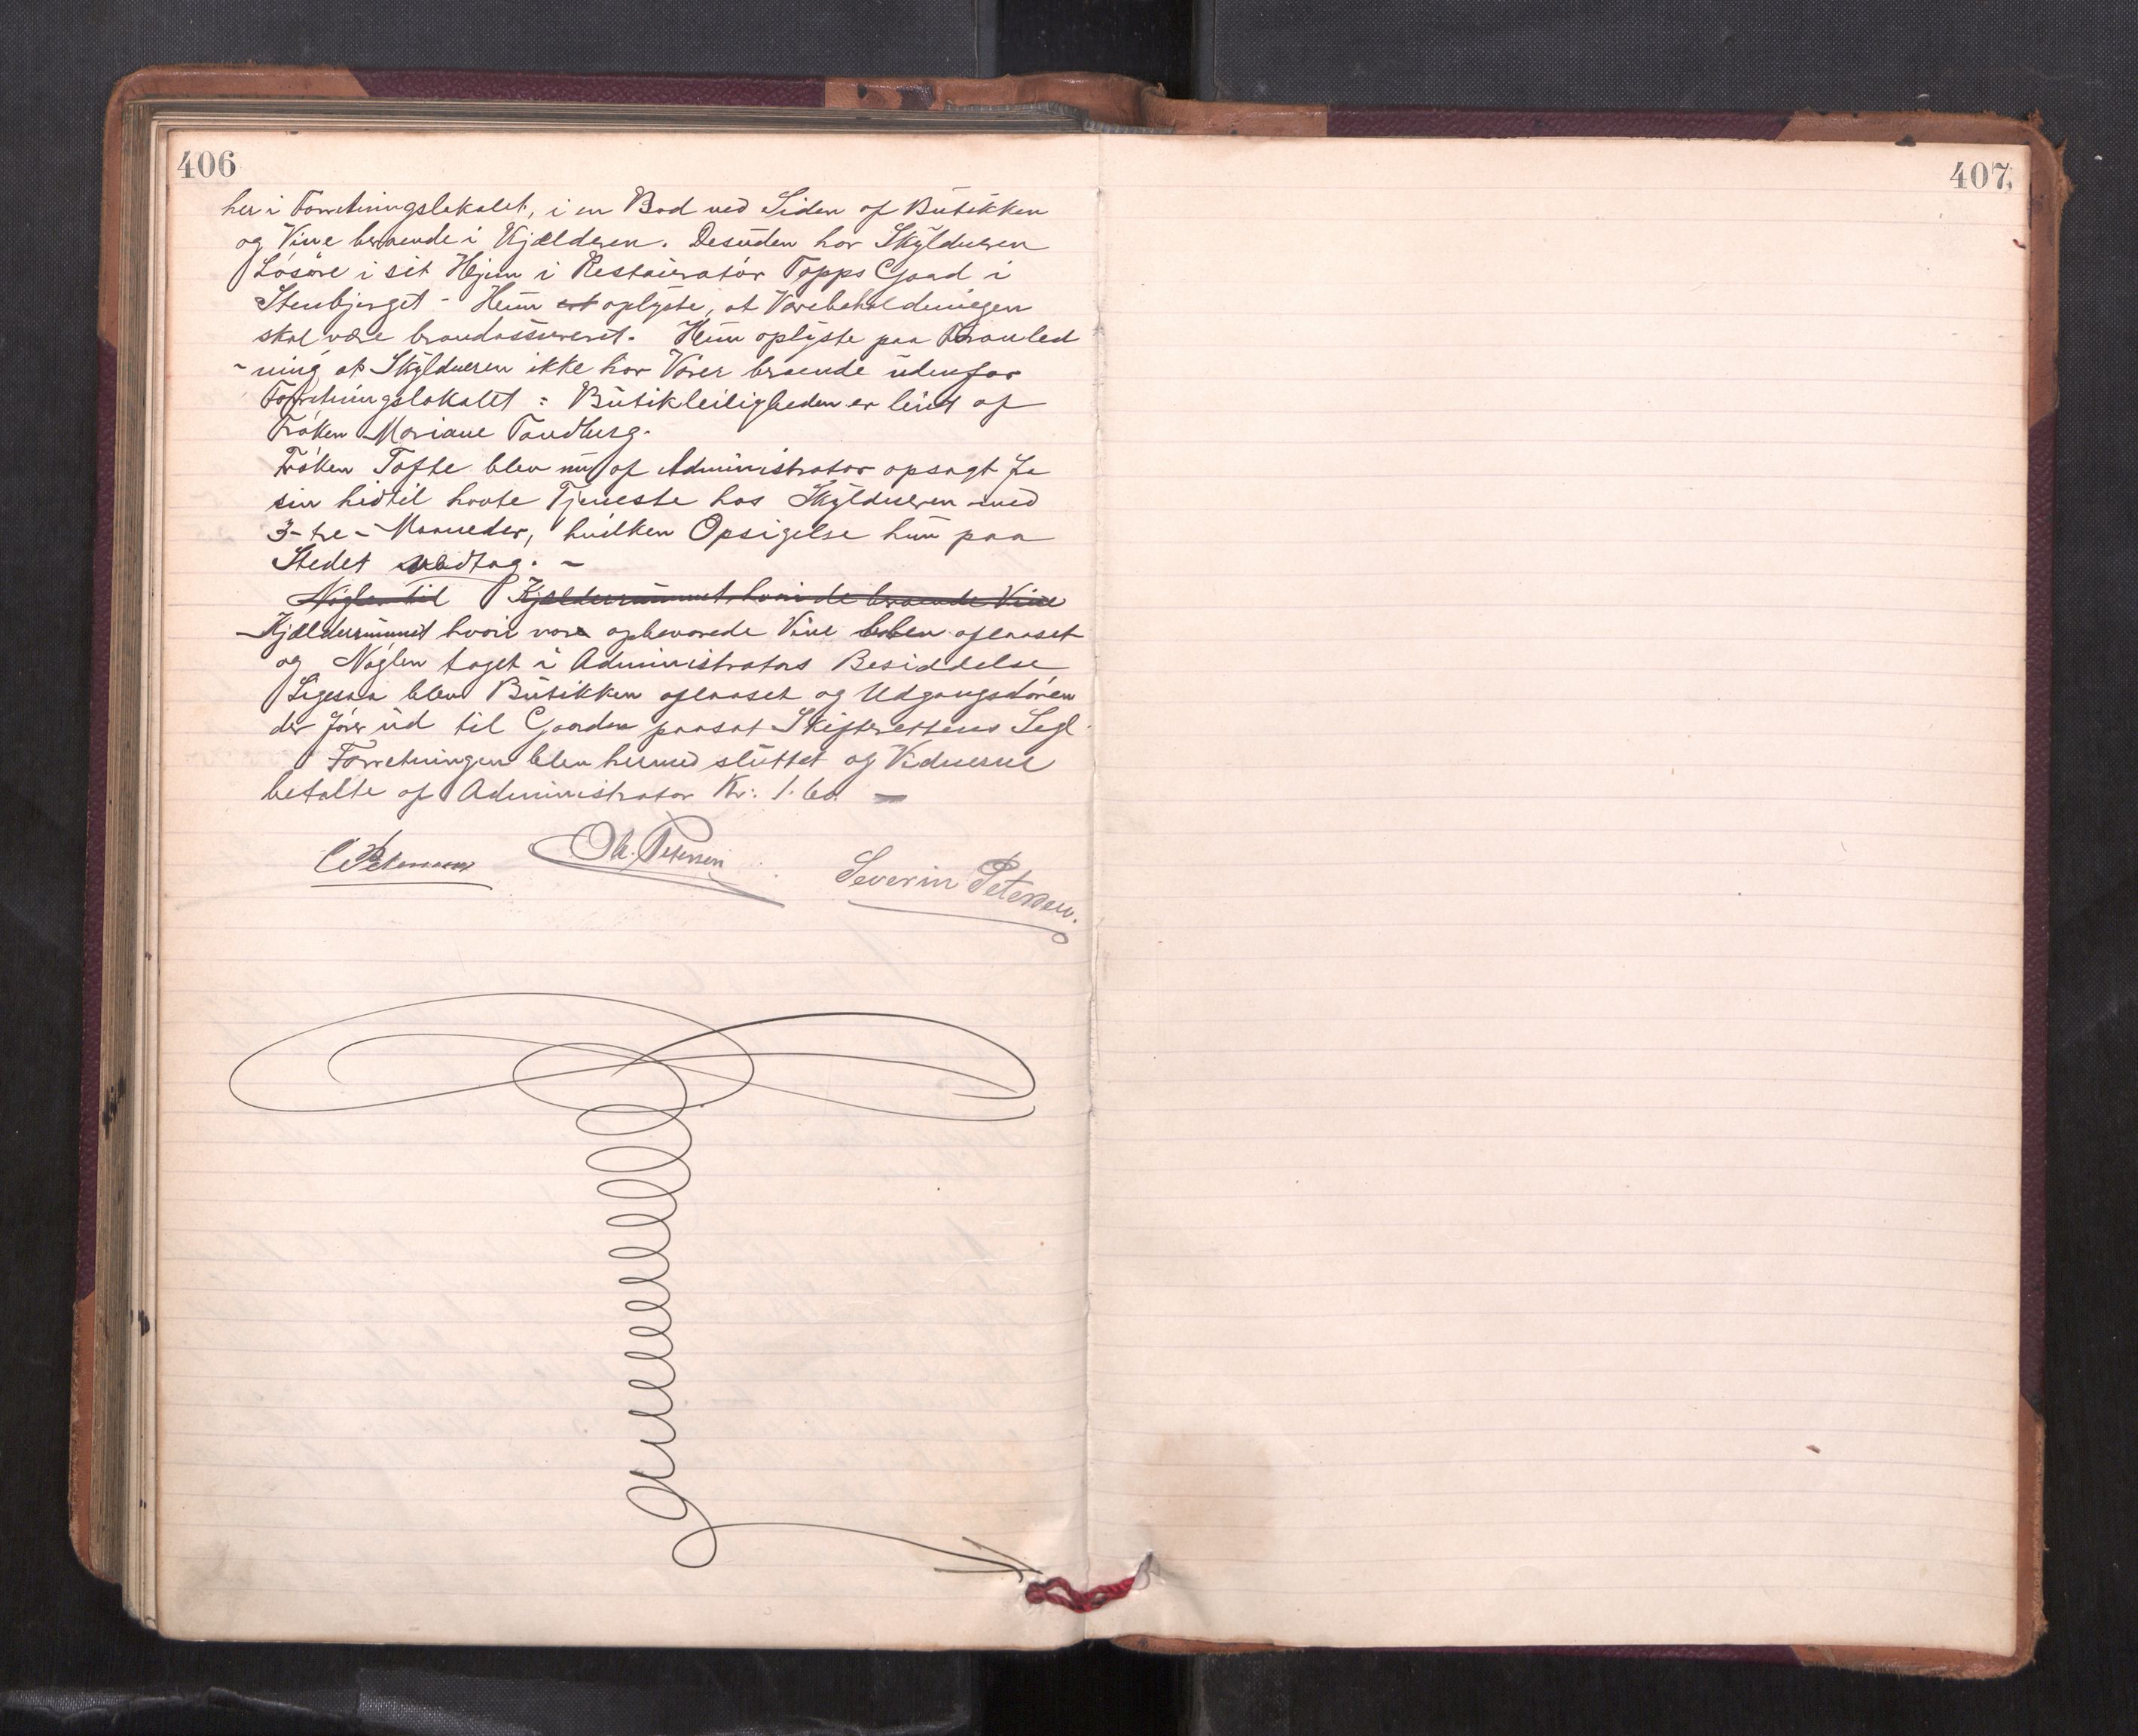 406
407
her i Forretningslokalet, i en Bod ved Siden af Butikken
og Vine beroende i Kjælderen. Desuden har Skyldneren
Løsøre i sit Hjem i Restauratør Topps Gaard i
Stenbjerget - Hun oplyste, at Varebeholdningen
skal være brandassureret. Hun oplyste paa Foranled
-ning at Skyldneren ikke har Varer beroende udenfor
Forretningslokalet : Butikleiligheden er leiet af
Frøken Mariane Tandberg.
Frøken Tofte blev nu af Administrator opsagt fra
sin hidtil havte Tjeneste hos Skyldneren med
3- tre - Maaneder, hvilken Opsigelse hun paa
Stedet vedtog. -
Nøglen til Kjælderrummet hvori de beroende Vine
Kjælderrummet hvori vare opbevarede Vine blev aflaaset
og Nøglen taget i Administrators Besiddelse
Ligesaa blev Butikken aflaaset og Udgangsdøren
der fører ud til Gaarden paasat Skifterettens Segl.
Forretningen blev hermed sluttet og Vidnerne
betalte af Administrator Kr: 1.60. -
C Petersen Ol. Petersen Severin Petersen.